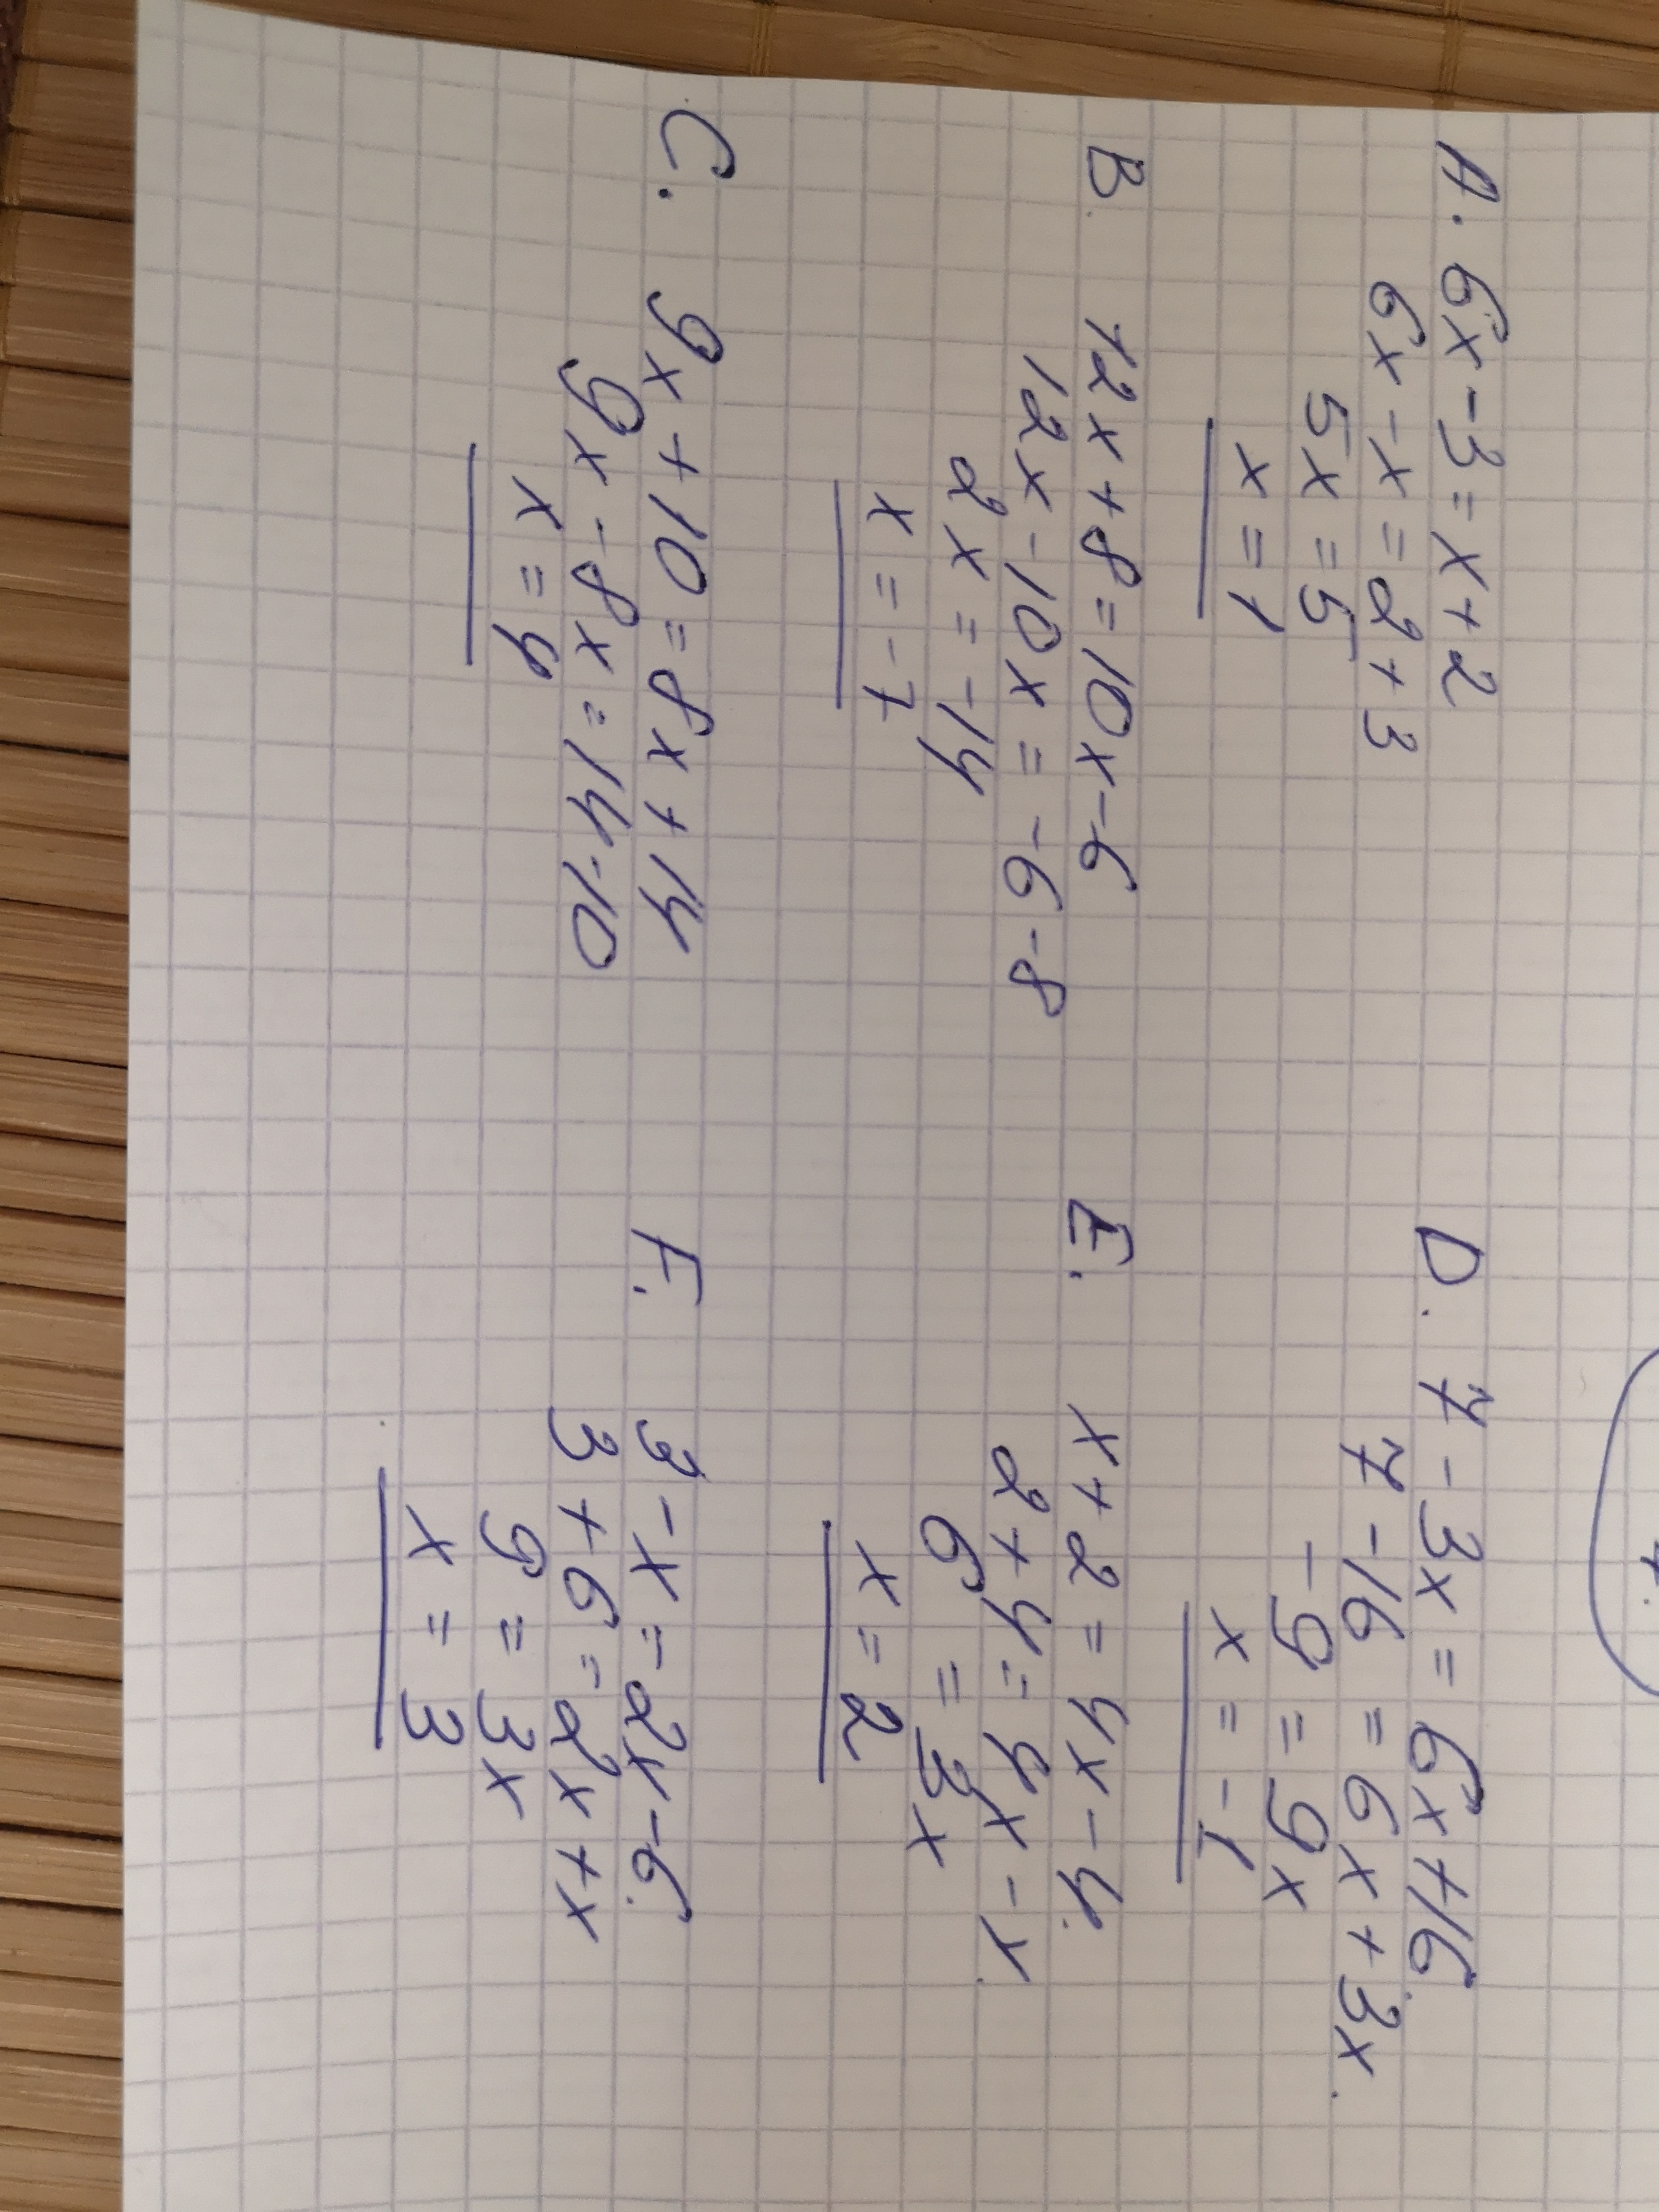 A. 6x - 3 = x + 2
6x - x = 2 + 3
5x = 5
x = 1
B. 12x + 8 = 10x - 6
12x - 10x = -6 - 8
2x = -14
x = -7
C. 9x + 10 = 8x + 14
9x - 8x = 14 - 10
x = 4
D. 7 - 3x = 6x + 16
7 - 16 = 6x + 3x.
-9 = 9x
x = -1
E. x + 2 = 4x - 4.
2 + 4 = 4x - x.
6 = 3x
x = 2
F. 3 - x = 2x - 6.
3 + 6 = 2x + x
9 = 3x
x = 3